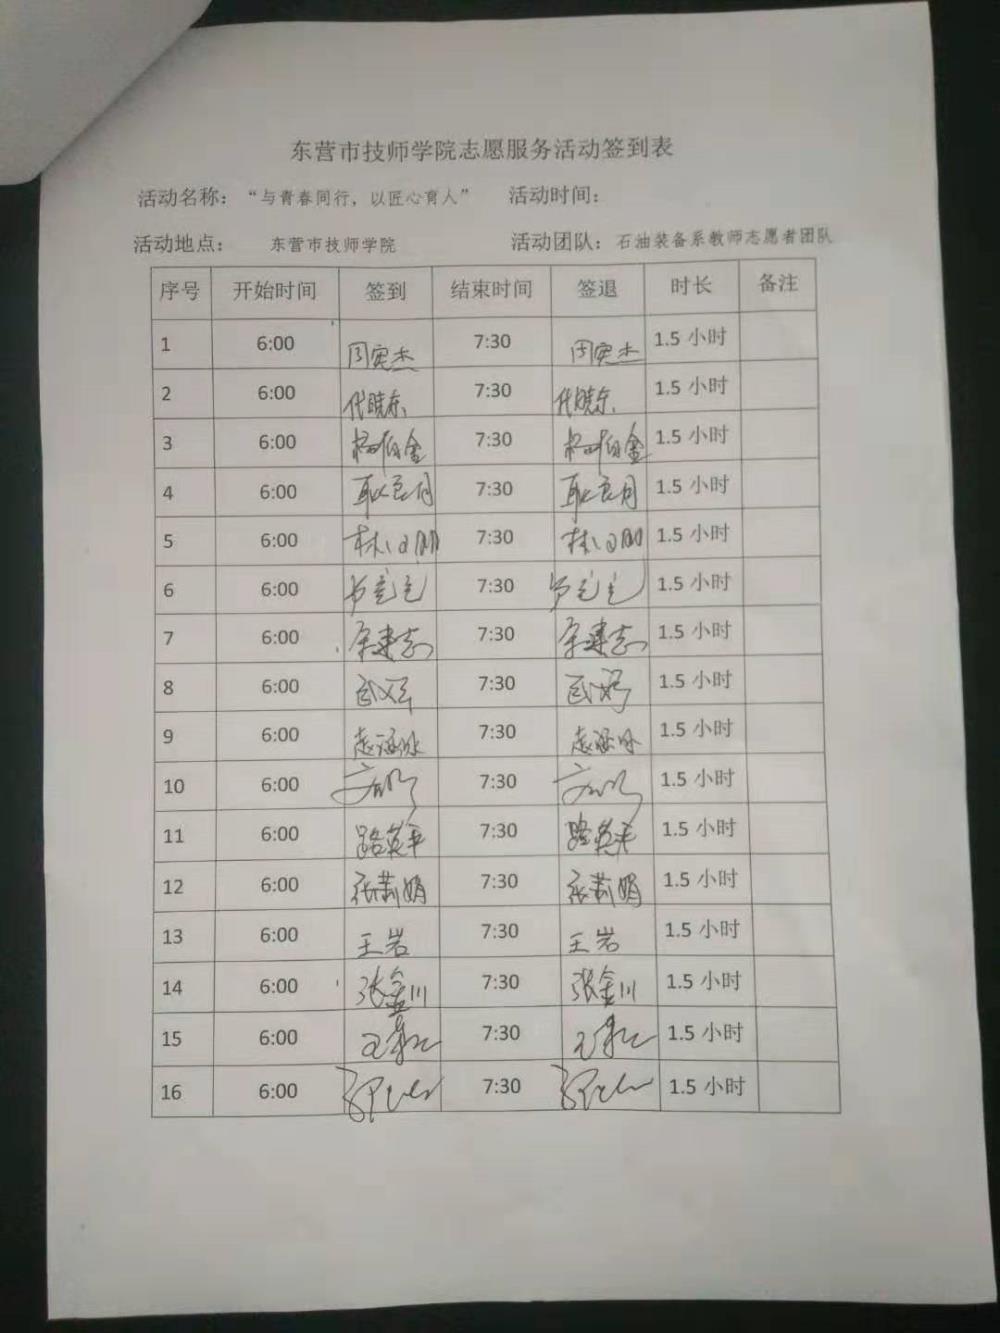 东营市技师学院志愿服务活动签到表
活动名称：“与青春同行，以匠心育人” 活动时间：
活动地点： 东营市技师学院 活动团队：石油装备系教师志愿者团队
序号 开始时间 签到 结束时间 签退 时长 备注
1 6:00 周宪杰 7:30 周宪杰 1.5 小时
2 6:00 代晓东 7:30 代晓东 1.5 小时
3 6:00 7:30 1.5 小时
4 6:00 耿良月 7:30 耿良月 1.5 小时
5 6:00 7:30 1.5 小时
6 6:00 7:30 1.5 小时
7 6:00 7:30 1.5 小时
8 6:00 7:30 1.5 小时
9 6:00 7:30 1.5 小时
10 6:00 7:30 1.5 小时
11 6:00 路英平 7:30 路英平 1.5 小时
12 6:00 张莉娟 7:30 张莉娟 1.5 小时
13 6:00 王岩 7:30 王岩 1.5 小时
14 6:00 张金川 7:30 张金川 1.5 小时
15 6:00 7:30 1.5 小时
16 6:00 7:30 1.5 小时